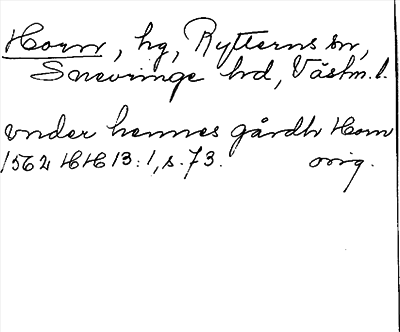 Horn, hg, Rytterns sn,
Snevringe hd, Västm. l.
vnder hennes gårdh Horn
1562 HH 13:1, s. 73. orig.